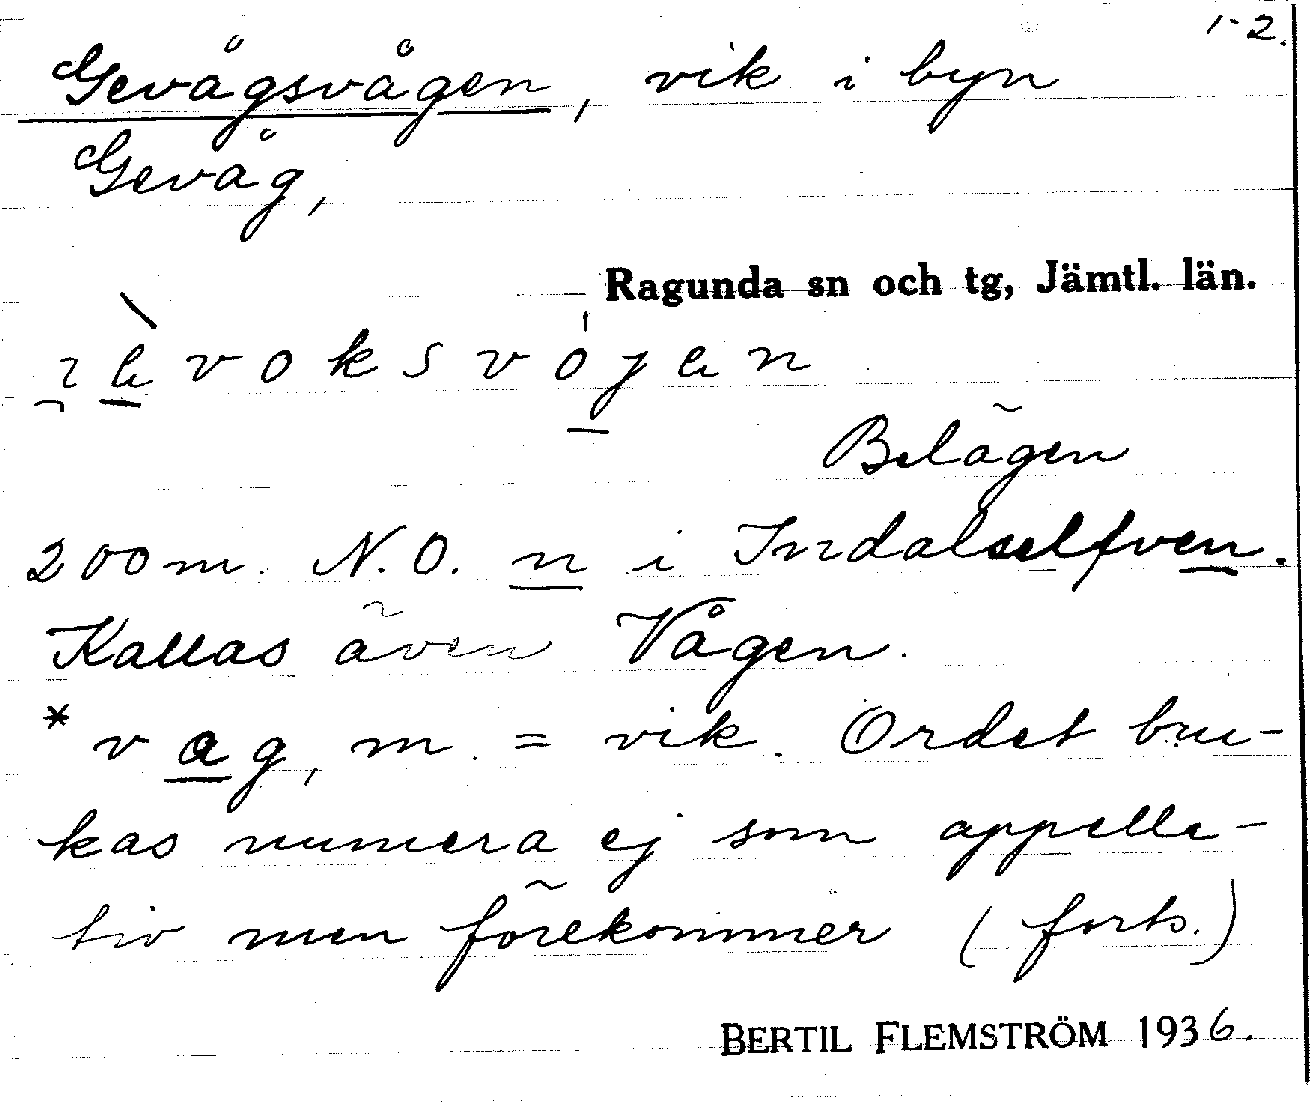 1-2.
Gevågsvågen, vik i byn
Gevåg,
Ragunda sn och tg, Jämtl. län.
Belägen
200 m. N.O. n i Indalselfven.
Kallas även Vågen.
*vag, m. = vik. Ordet bru-
kas numera ej som appella-
tiv men förekommer (forts.)
BERTIL FLEMSTRÖM 1936.